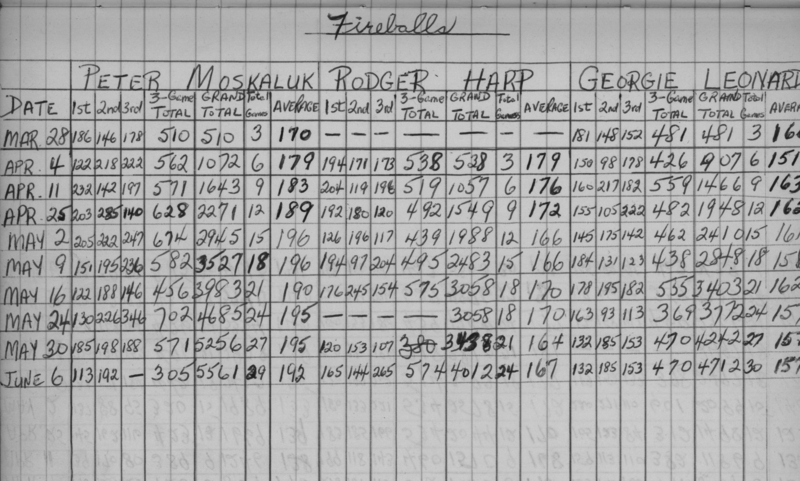 Fireballs
PETER MOSKALUK RODGER HARP GEORGIE LEONARD
DATE 1st 2nd 3rd 3-Game TOTAL GRAND TOTAL Total Games AVERAGE 1st 2nd 3rd 3-Game TOTAL GRAND TOTAL Total Games AVERAGE 1st 2nd 3rd 3-Game TOTAL GRAND TOTAL Total Games
MAR. 28 186 146 178 510 510 3 170 — — — — — — — 181 148 152 481 481 3
APR. 4 122 218 222 562 1072 6 179 194 171 173 538 538 3 179 150 98 178 426 907 6 151
APR. 11 232 142 197 571 1643 9 183 204 119 196 519 1057 6 176 160 217 182 559 1466 9 163
APR. 25 203 285 140 628 2271 12 189 192 180 120 492 1549 9 172 155 105 222 482 1948 12 162
MAY 2 205 222 247 674 2945 15 196 126 196 117 439 1988 12 166 145 175 142 462 2410 15
MAY 9 151 195 236 582 3527 18 196 194 97 204 495 2483 15 166 184 131 123 438 2848 18
MAY 16 122 188 146 456 3983 21 190 176 245 154 575 3058 18 170 178 195 182 555 3403 21 162
MAY 24 130 226 346 702 4685 24 195 — — — — 3058 18 170 163 93 113 369 3772 24
MAY 30 185 198 188 571 5256 27 195 120 153 107 380 3438 21 164 132 185 153 470 4242 27
JUNE 6 113 192 — 305 5561 29 192 165 144 265 574 4012 24 167 132 185 153 470 4712 30